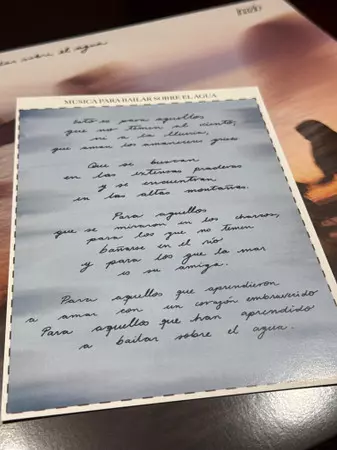 lar sobre el agua
MUSICA PARA BAILAR SOBRE EL AGUA
Esto es para aquellos
que no temen al viento,
ni a la lluvia,
que aman los amaneceres grises
Que se buscan
en las extensas praderas
y se encuentran
en las altas montañas.
Para aquellos
que se miraron en los charcos,
para los que no temen
bañarse en el río
y para los que la mar
es su amiga.
Para aquellos que aprendieron
a amar con un corazón embravecido
Para aquellos que han aprendido
a bailar sobre el agua.